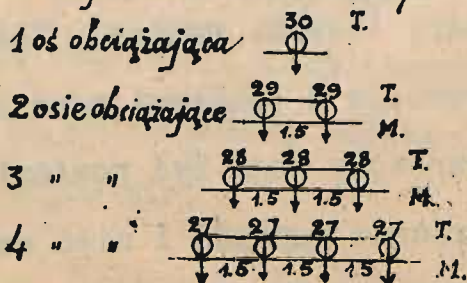 1 oś obciążająca 30 T.
2 osie obciążające 29 29 T.
1.5 M.
3 " " 28 28 28 T.
1.5 1.5 M.
4 " " 27 27 27 27 T.
1.5 1.5 1.5 M.